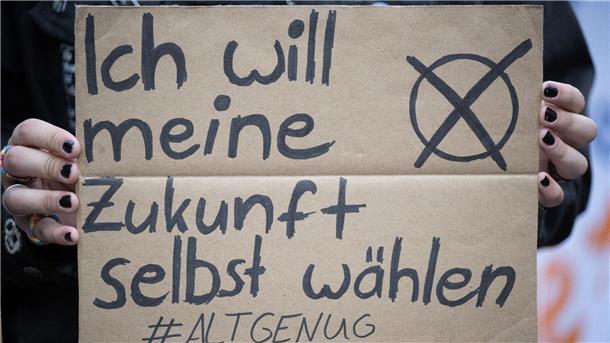 Ich will
meine
Zukunft
selbst wählen
#ALTGENUG